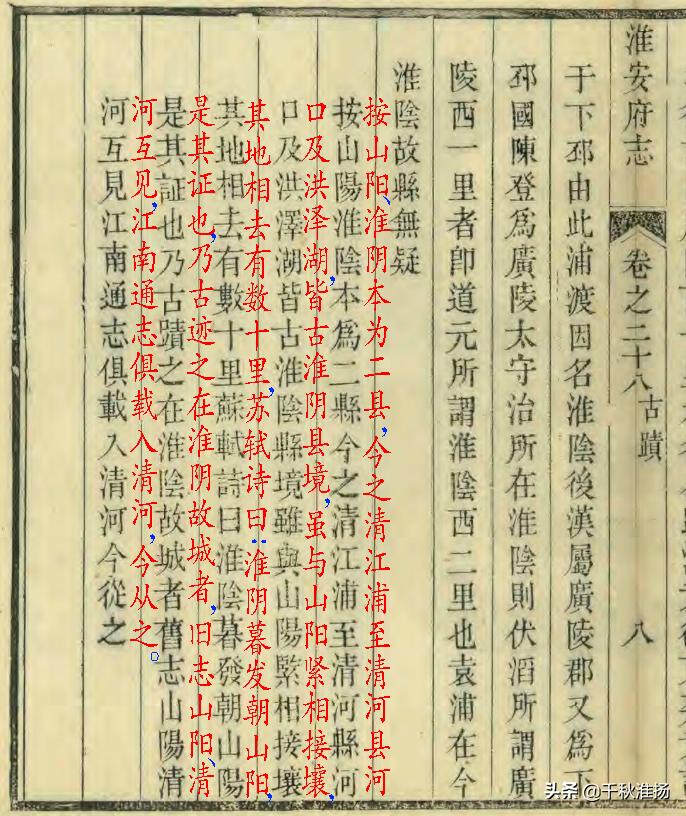 淮安府志 卷之二十八 古蹟 八
于下邳由此浦渡因名淮陰後漢屬廣陵郡又爲下
邳國陳登爲廣陵太守治所在淮陰則伏滔所謂廣
陵西一里者卽道元所謂淮陰西二里也袁浦在今
淮陰故縣無疑
按山阳、淮阴本为二县，今之清江浦至清河县河
按山陽淮陰本爲二縣今之清江浦至清河縣河
口及洪泽湖，皆古淮阴县境，虽与山阳紧相接壤，
口及洪澤湖皆古淮陰縣境雖與山陽緊相接壤
其地相去有数十里，苏轼诗曰：淮阴暮发朝山阳，
其地相去有數十里蘇軾詩曰淮陰暮發朝山陽
是其证也，乃古迹之在淮阴故城者，旧志山阳、清
是其証也乃古蹟之在淮陰故城者舊志山陽清
河互见，江南通志俱载入清河，今从之。
河互見江南通志俱載入清河今從之
头条 @千秋淮扬